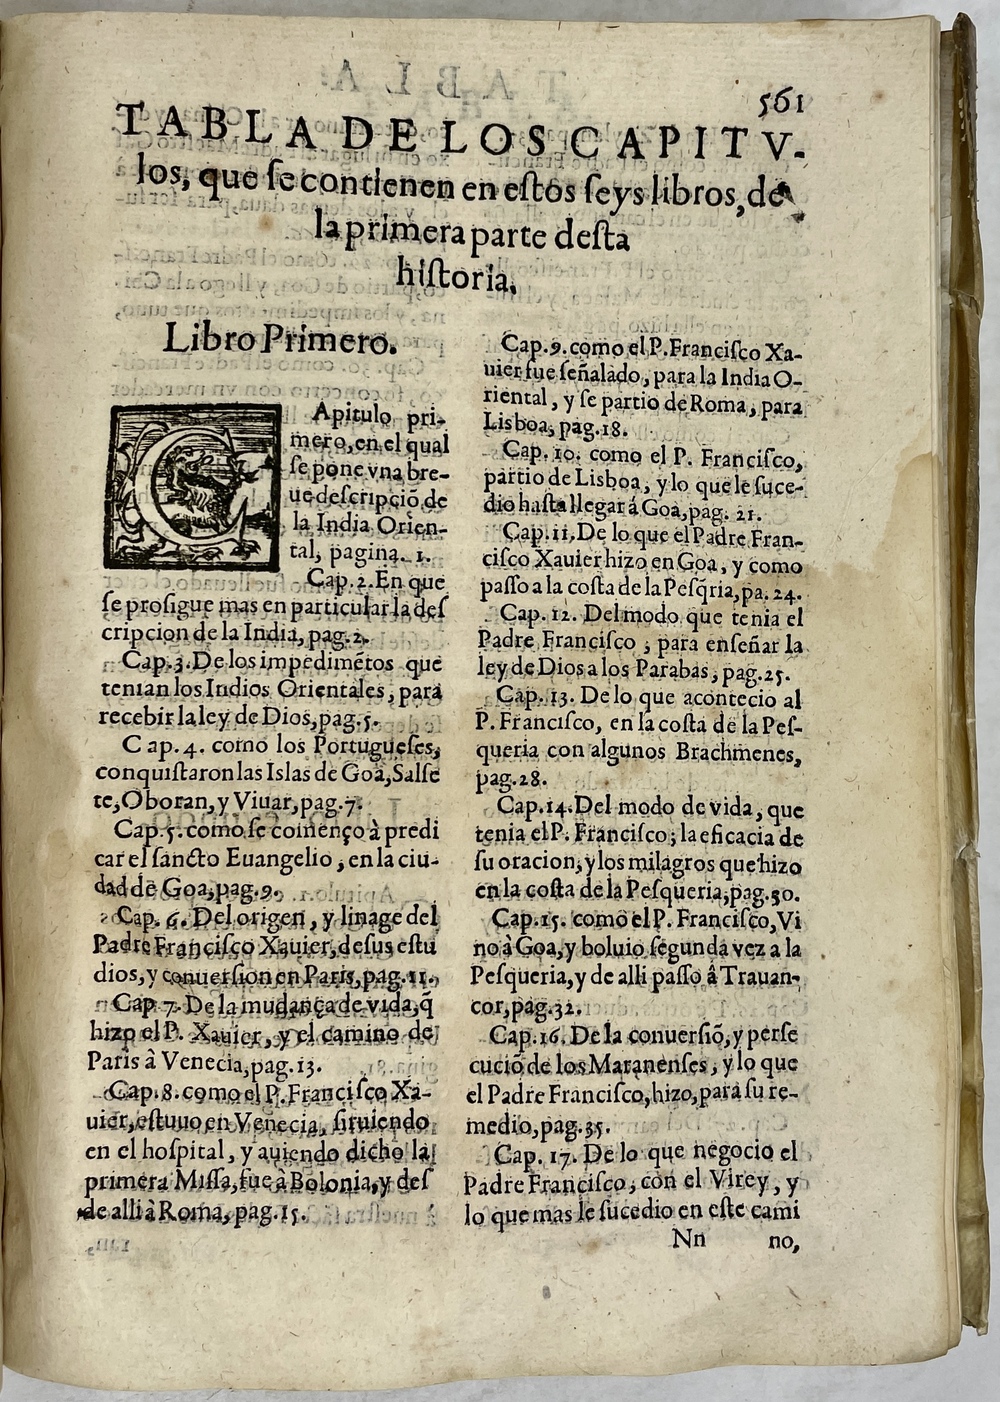 561
TABLA DE LOS CAPITV-
los, que se contienen en estos seys libros, de
la primera parte desta
historia.
Libro Primero.
CApitulo pri-
mero, en el qual
se pone vna bre-
ue descripciõ de
la India Orien-
tal, pagina. 1.
Cap. 2. En que
se prosigue mas en particular la des
cripcion de la India, pag. 2.
Cap. 3. De los impedimẽtos que
tenian los Indios Orientales, para
recebir la ley de Dios, pag. 5.
Cap. 4. como los Portugueses,
conquistaron las Islas de Goa, Salse
te, Oboran, y Viuar, pag. 7.
Cap. 5. como se començo à predi
car el sancto Euangelio, en la ciu-
dad de Goa, pag. 9.
Cap. 6. Del origen, y linage del
Padre Francisco Xauier, de sus estu
dios, y conuersion en Paris, pag. 11.
Cap. 7. De la mudança de vida, q̃
hizo el P. Xauier, y el camino de
Paris â Venecia, pag. 13.
Cap. 8. como el P. Francisco Xa-
uier, estuuo en Venecia, siruiendo
en el hospital, y auiendo dicho la
primera Missa, fue à Bolonia, y des
de alli â Roma, pag. 15.
Cap. 9. como el P. Francisco Xa-
uier fue señalado, para la India O-
riental, y se partio de Roma, para
Lisboa, pag. 18.
Cap. 10. como el P. Francisco,
partio de Lisboa, y lo que le suce-
dio hasta llegar á Goa, pag. 21.
Cap. 11. De lo que el Padre Fran-
cisco Xauier hizo en Goa, y como
passo a la costa de la Pesq̃ria, pa. 24.
Cap. 12. Del modo que tenia el
Padre Francisco, para enseñar la
ley de Dios a los Parabas, pag. 25.
Cap. 13. De lo que acontecio al
P. Francisco, en la costa de la Pes-
queria con algunos Brachmenes,
pag. 28.
Cap. 14. Del modo de vida, que
tenia el P. Francisco; la eficacia de
su oracion, y los milagros que hizo
en la costa de la Pesqueria, pag. 30.
Cap. 15. como el P. Francisco, Vi
no à Goa, y boluio segunda vez a la
Pesqueria, y de alli passo â Trauan-
cor, pag. 32.
Cap. 16. De la conuersiõ, y perse
cuciõ de los Maranenses, y lo que
el Padre Francisco, hizo, para su re-
medio, pag. 35.
Cap. 17. De lo que negocio el
Padre Francisco, con el Virey, y
lo que mas le sucedio en este cami
Nn no,